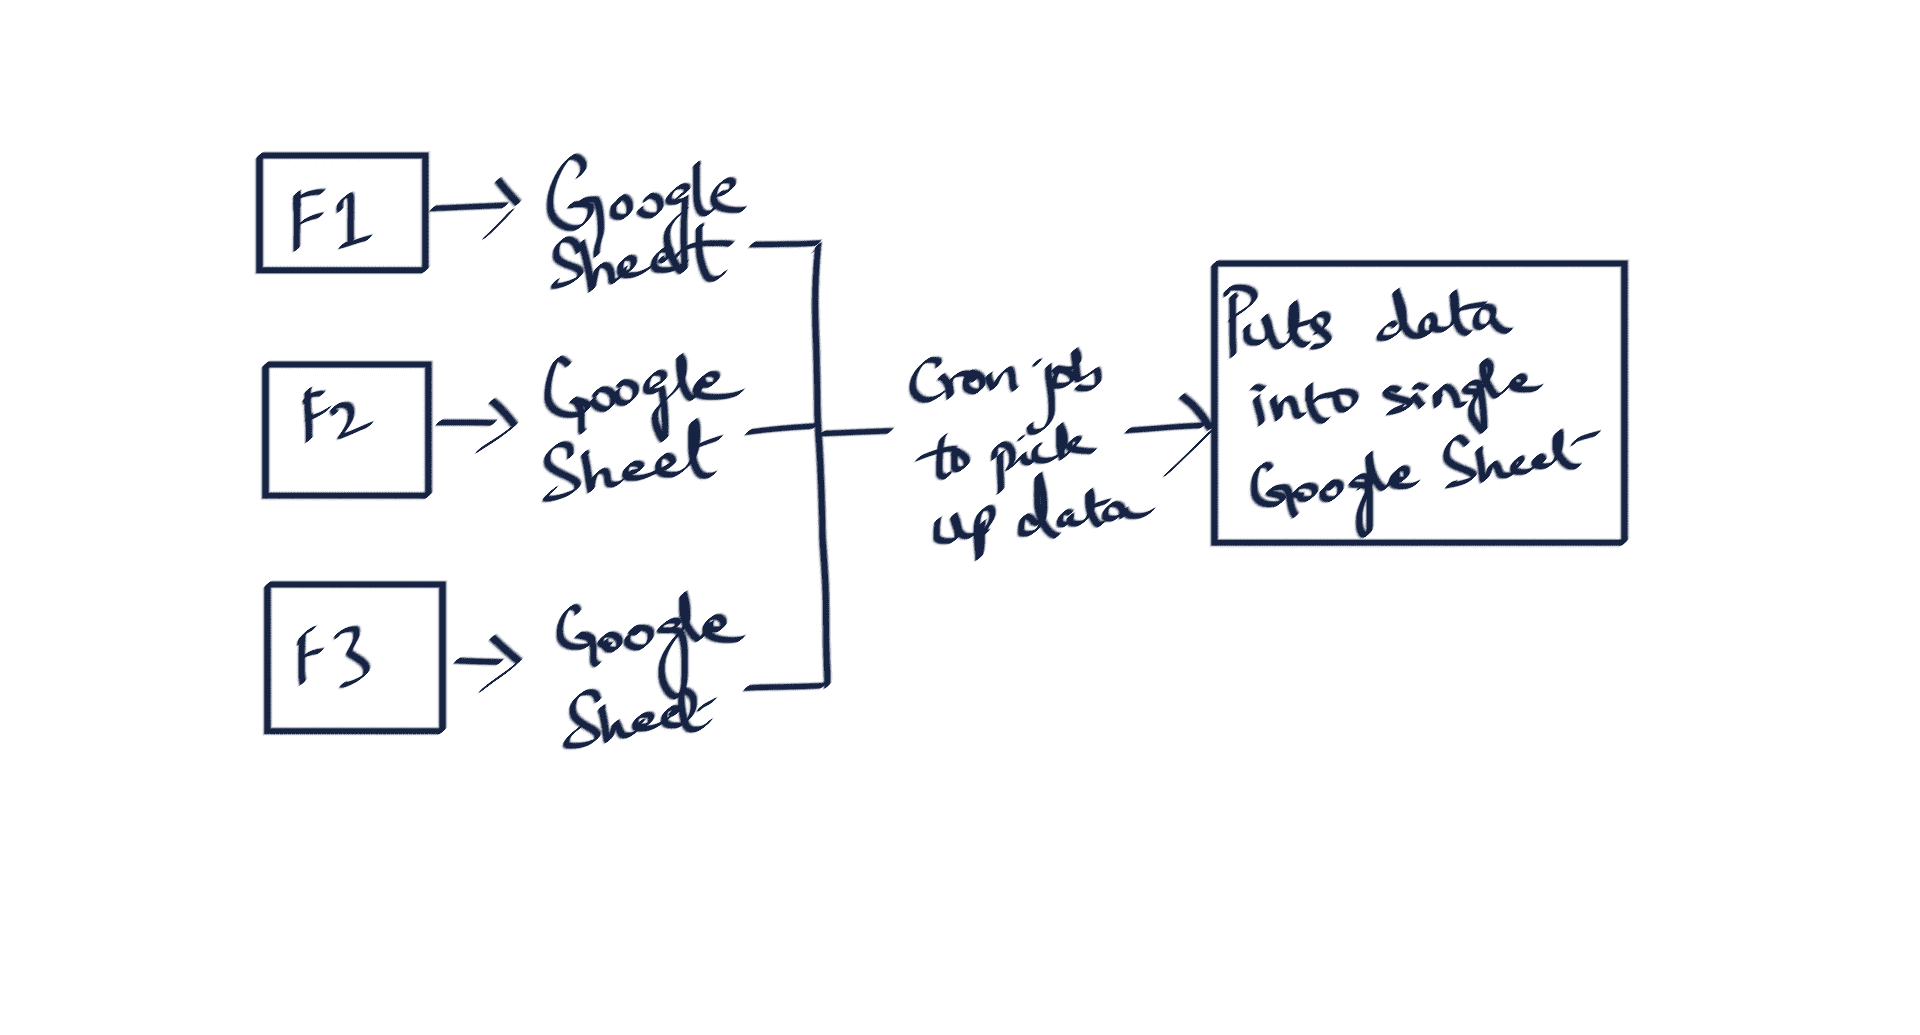 F1
Google
Sheet
F2
Google
Sheet
F3
Google
Sheet
Cron job
to pick
up data
Puts data
into single
Google Sheet